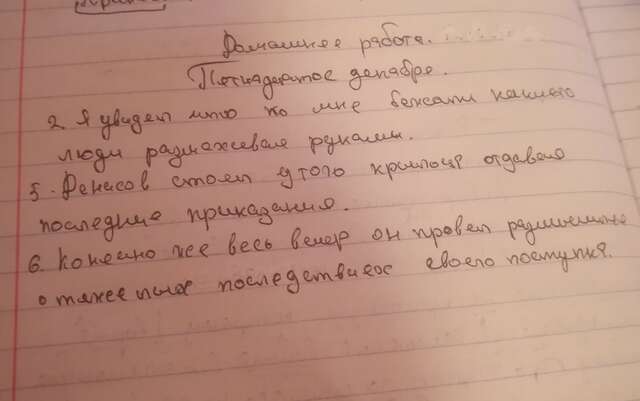 Домашнее работа.
Пятнадцатое декабре.
2. Я увидел што ко мне бежали какието
люди размахевая руками.
5. Денисов стоял у того крыльця отдавая
последние приказания.
6. Конешно же весь вечер он провел размышляя
о тяжелых последствиях своего поступка.